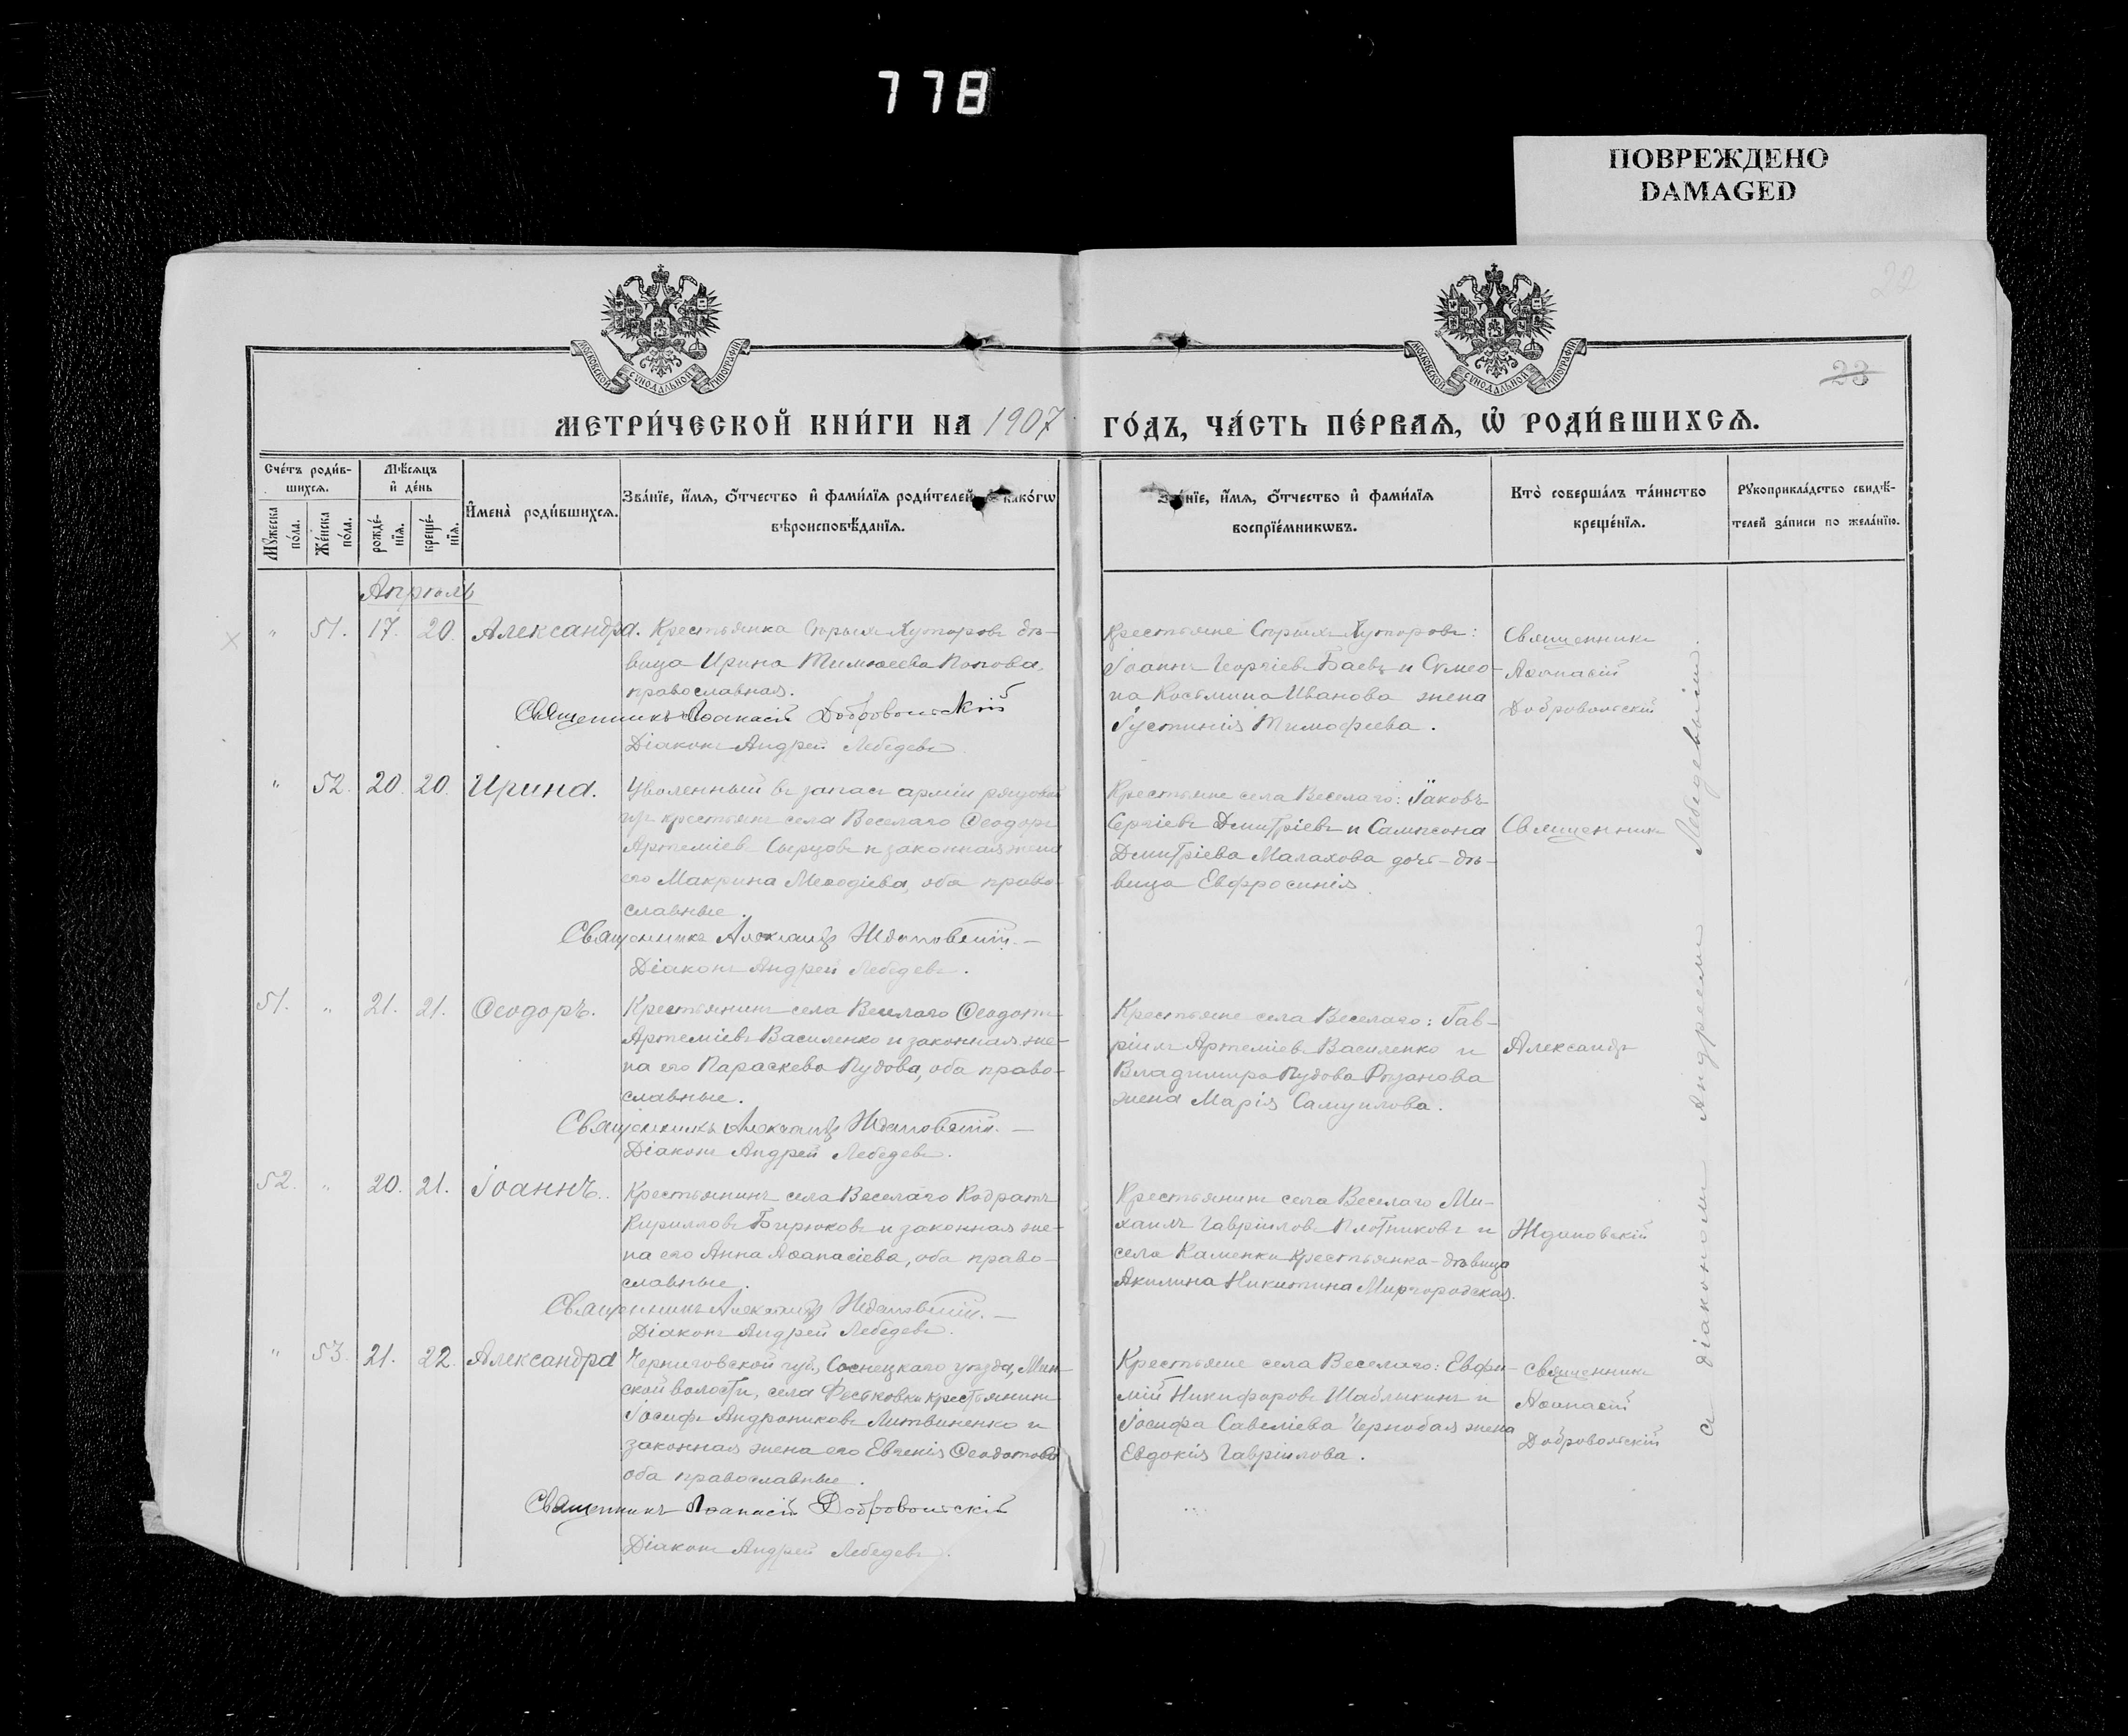 778
ПОВРЕЖДЕНО
DAMAGED
22
23
МОСКОВСКОЙ СѴНОДАЛЬНОЙ ТИПОГРАФІИ
МОСКОВСКОЙ СѴНОДАЛЬНОЙ ТИПОГРАФІИ
МЕТРИ́ЧЕСКОЙ КНИ́ГИ НА 1907 ГО́ДЪ, ЧА́СТЬ ПЕ́РВАѦ, Ѡ҆ РОДИ́ВШИХСѦ.
Сче́тъ роди́в-
шихсѧ.
Мꙋ́жеска по́ла.
Же́нска по́ла.
Мѣ́сѧцъ
и҆ де́нь
рожде́-
нїѧ.
креще́-
нїѧ.
И҆мена̀ роди́вшихсѧ.
Зва́нїе, и҆́мѧ, ѻ҆́тчество и҆ фами́лїѧ роди́телей, како́гѡ
вѣроисповѣ́данїѧ.
Зва́нїе, и҆́мѧ, ѻ҆́тчество и҆ фами́лїѧ
воспрїе́мникѡвъ.
Кто̀ соверша́лъ та́инство
креще́нїѧ.
Рꙋкоприкла́дство свидѣ́-
телей за́писи по жела́нїю.
Апрѣль
" 51. 17. 20. Александра. Крестьянка Старыхъ Хуторовъ дѣ-
вица Ирина Тимоѳеева Попова,
православная.
Священникъ Аѳанасій Добровольскій
Діаконъ Андрей Лебедевъ
Крестьяне Старыхъ Хуторовъ:
Іоаннъ Георгіевъ Баевъ и Симео-
на Космина Иванова жена
Іустинія Тимофеева.
Священникъ
Аѳанасій
Добровольскій
" 52. 20. 20. Ирина. Уволенный въ запасъ арміи рядовой
изъ крестьянъ села Веселаго Ѳеодоръ
Артеміевъ Сырцовъ и законная жена
его Макрина Меѳодіева, оба право-
славные.
Священникъ Александръ Ждановскій.
Діаконъ Андрей Лебедевъ.
Крестьяне села Веселаго: Іаковъ
Сергіевъ Дмитріевъ и Сампсона
Дмитріева Малахова дочь-дѣ-
вица Евфросинія.
Священникъ
51. " 21. 21. Ѳеодоръ. Крестьянинъ села Веселаго Ѳеодотъ
Артеміевъ Василенко и законная же-
на его Параскева Пудова, оба право-
славные.
Священникъ Александръ Ждановскій.
Діаконъ Андрей Лебедевъ.
Крестьяне села Веселаго: Гав-
ріилъ Артеміевъ Василенко и
Владимира Пудова Рязанова
жена Марія Самуилова.
Александръ
52. " 20. 21. Іоаннъ. Крестьянинъ села Веселаго Кодратъ
Кирилловъ Бирюковъ и законная же-
на его Анна Аѳанасіева, оба право-
славные.
Священникъ Александръ Ждановскій.
Діаконъ Андрей Лебедевъ.
Крестьянинъ села Веселаго Ми-
хаилъ Гавріиловъ Плотниковъ и
села Каменки крестьянка-дѣвица
Акилина Никитина Миргородская.
Ждановскій
" 53. 21. 22. Александра Черниговской губ., Сосницкаго уѣзда, Мен-
ской волости, села Феськовки крестьянинъ
Іосифъ Андрониковъ Литвиненко и
законная жена его Евгенія Ѳеодотова
оба православные.
Священникъ Аѳанасій Добровольскій
Діаконъ Андрей Лебедевъ.
Крестьяне села Веселаго: Евфи-
мій Никифоровъ Шаблыкинъ и
Іосифа Савеліева Чернобая жена
Евдокія Гавріилова.
Священникъ
Аѳанасій
Добровольскій
съ діакономъ Андреемъ Лебедевымъ.